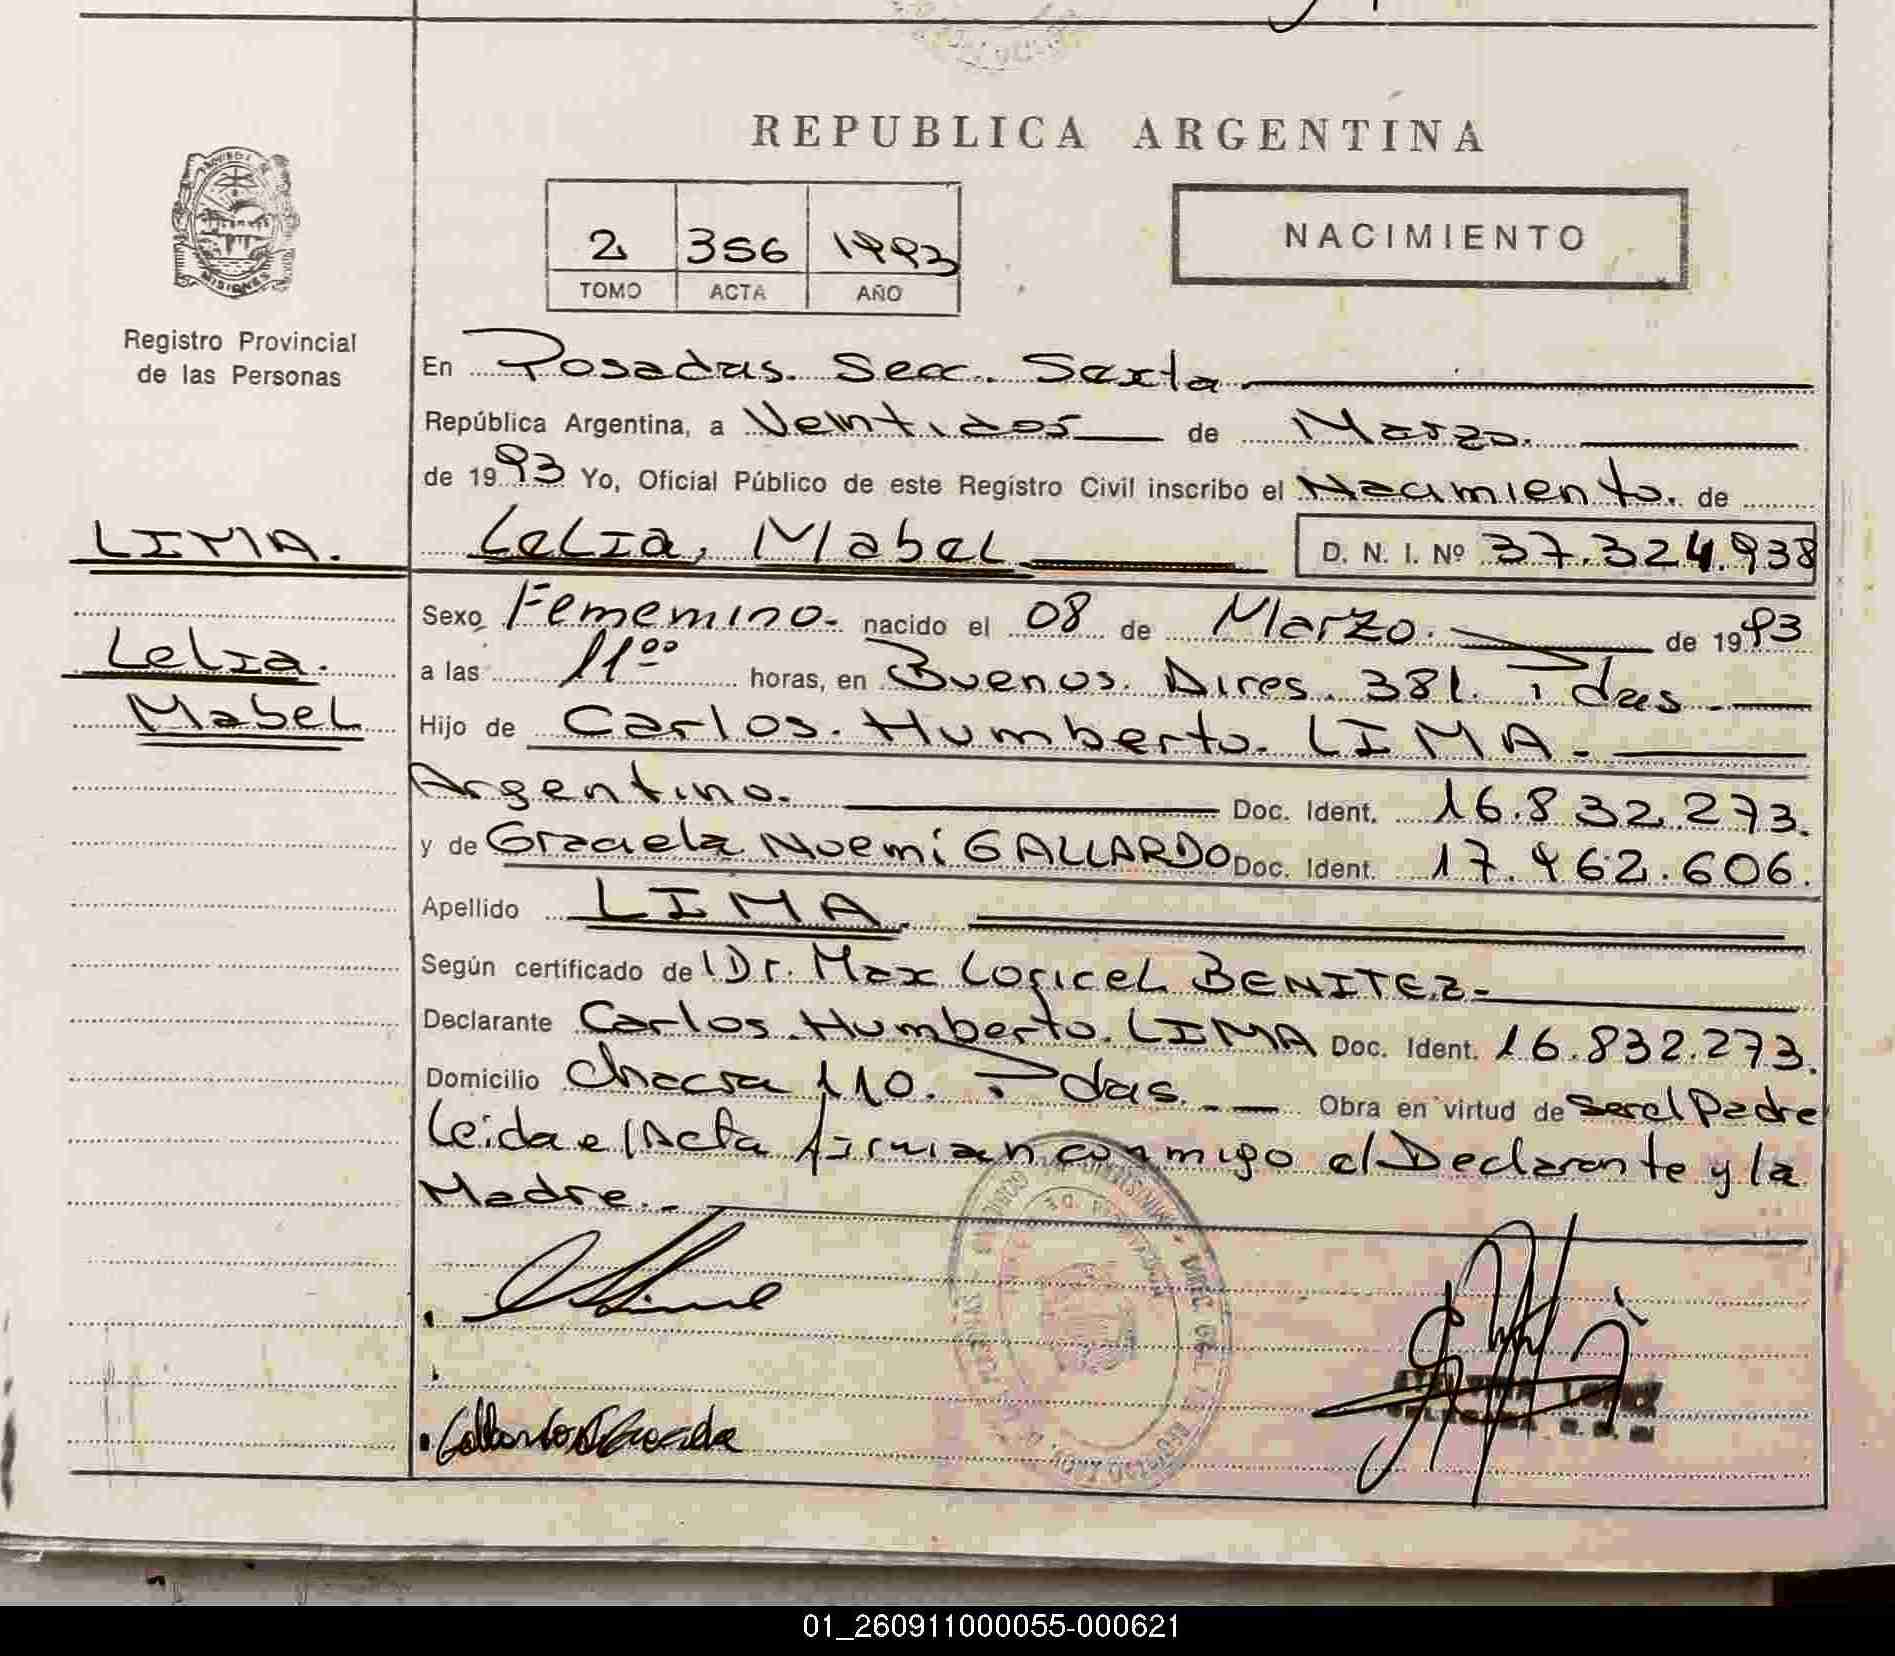 REPUBLICA ARGENTINA
NACIMIENTO
2 356 1993
TOMO ACTA AÑO
MISIONES
Registro Provincial
de las Personas
En Posadas. Secc. Sexta
República Argentina, a Veintidos de Marzo.
de 1993 Yo, Oficial Público de este Registro Civil inscribo el Nacimiento. de
LIMA.
Lelia, Mabel D. N. I. Nº 37.324.938
Sexo Fememino. nacido el 08 de Marzo. de 1993
Lelia.
a las 11⁰⁰ horas, en Buenos. Aires. 381. Pdas
Mabel
Hijo de Carlos. Humberto. LIMA.
Argentino. Doc. Ident. 16.832.273.
y de Graciela Noemí GALLARDO Doc. Ident. 17.462.606.
Apellido LIMA.
Según certificado de Dr. Max BENITEZ-
Declarante Carlos. Humberto. LIMA Doc. Ident. 16.832.273.
Domicilio Chacra 110. Pdas. Obra en virtud de ser el Padre
Leida el Acta firman conmigo el Declarante y la
Madre.
Gallardo Graciela
LOPEZ
01_260911000055-000621